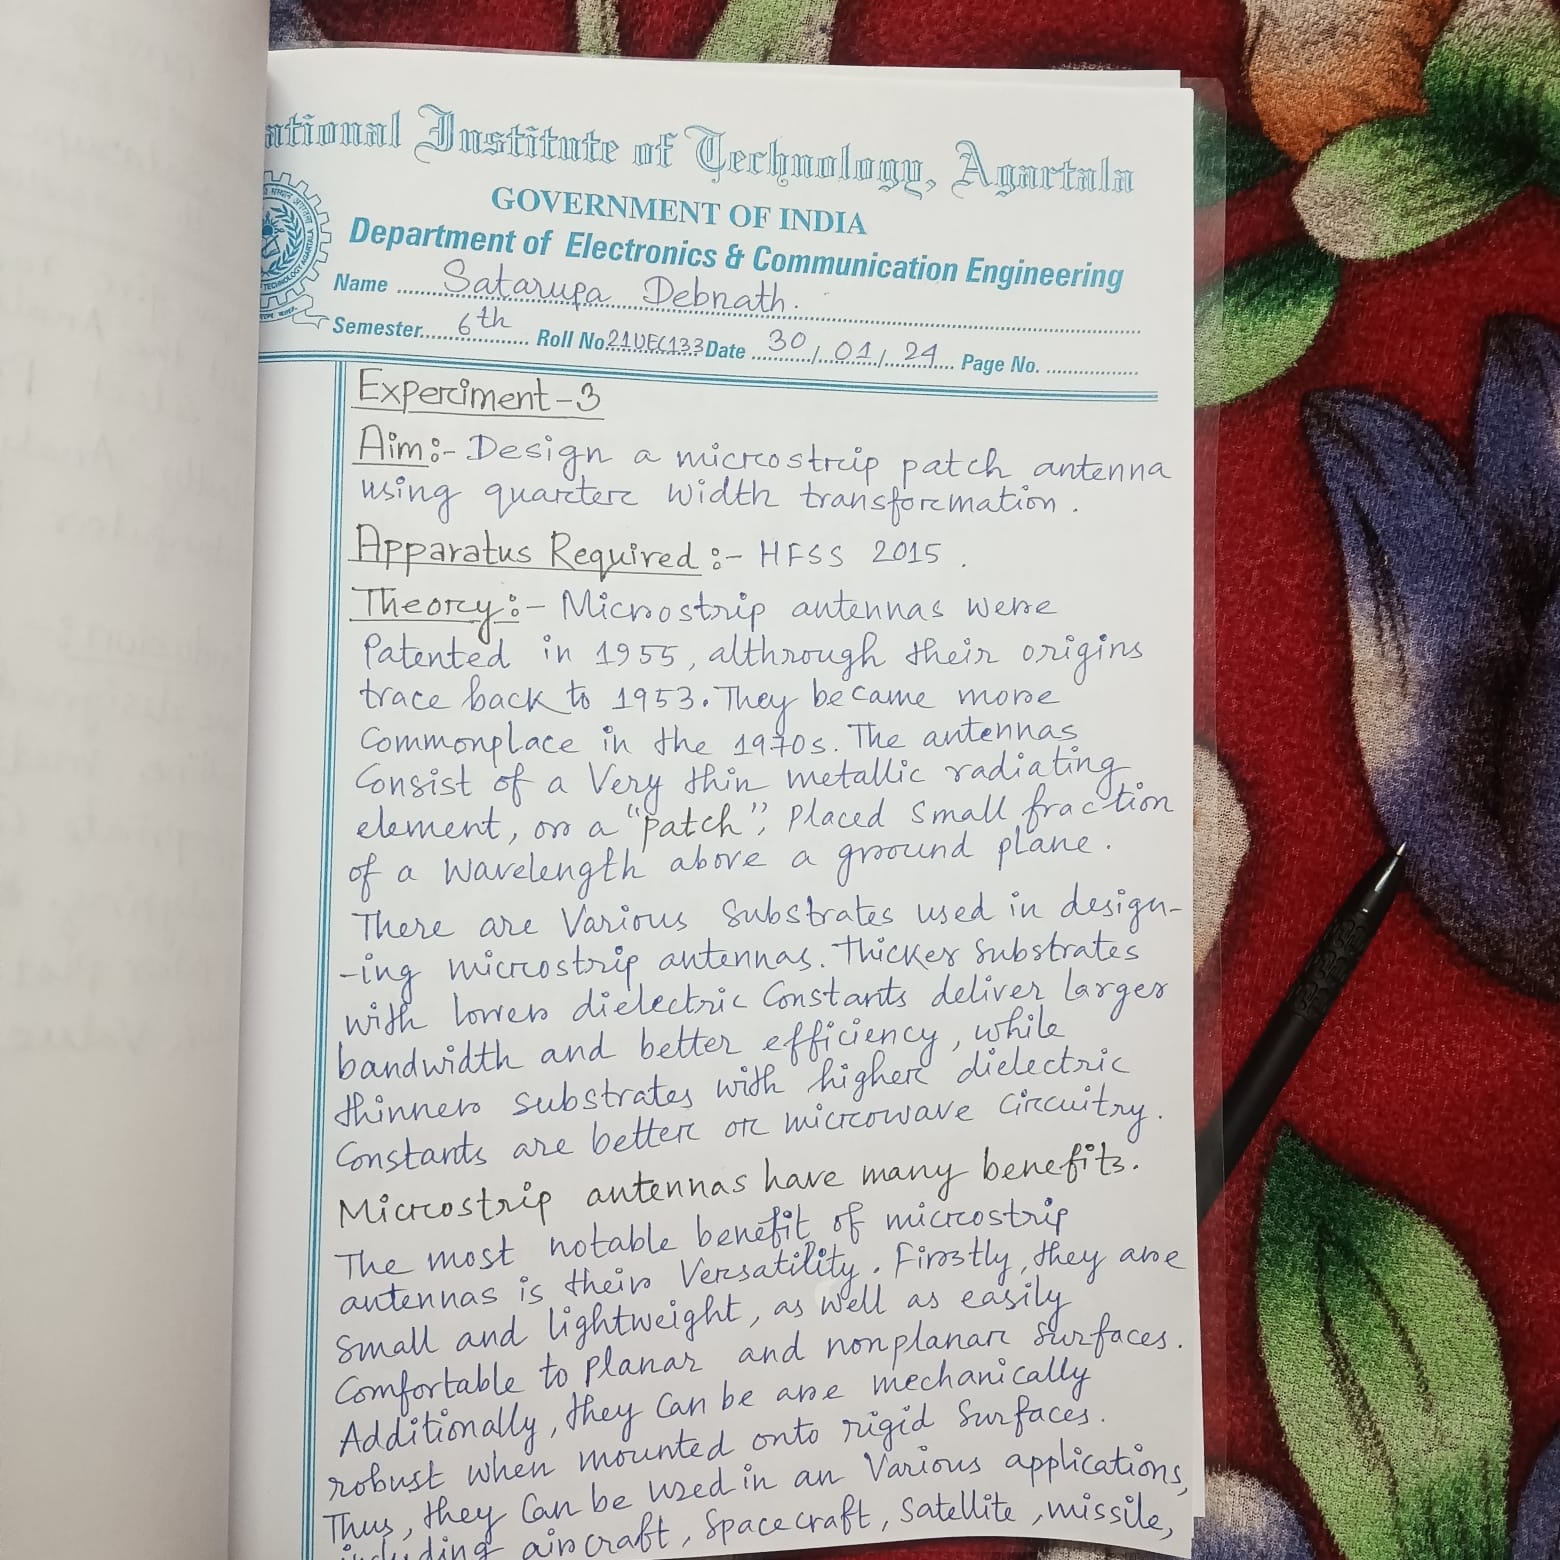 ational Institute of Technology, Agartala
GOVERNMENT OF INDIA
Department of Electronics & Communication Engineering
Name Satarupa Debnath.
Semester 6th Roll No. 21UEC133 Date 30/01/24 Page No.
Experiment-3
Aim:- Design a microstrip patch antenna
using quarter width transformation.
Apparatus Required:- HFSS 2015.
Theory:- Microstrip antennas were
Patented in 1955, althrough their origins
trace back to 1953. They became more
Commonplace in the 1970s. The antennas
Consist of a Very thin metallic radiating
element, or a "patch", Placed small fraction
of a wavelength above a ground plane.
There are Various Substrates used in design-
-ing microstrip antennas. Thicker Substrates
with lower dielectric Constants deliver larger
bandwidth and better efficiency, while
thinner substrates with higher dielectric
Constants are better or microwave circuitry.
Microstrip antennas have many benefits.
The most notable benefit of microstrip
antennas is their Versatility. Firstly, they are
Small and lightweight, as well as easily
Comfortable to Planar and nonplanar Surfaces.
Additionally, they Can be are mechanically
robust when mounted onto rigid Surfaces.
Thus, they Can be used in an Various applications,
including aircraft, Spacecraft, Satellite, missile,